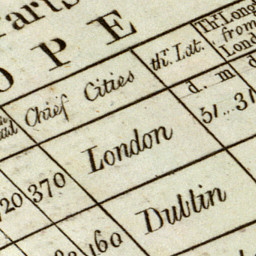 Parts
OPE
Chief Cities
thr. Lat.
Thr. Long
from
Lond
d. m
d
20 370 London 51..31
160 Dublin